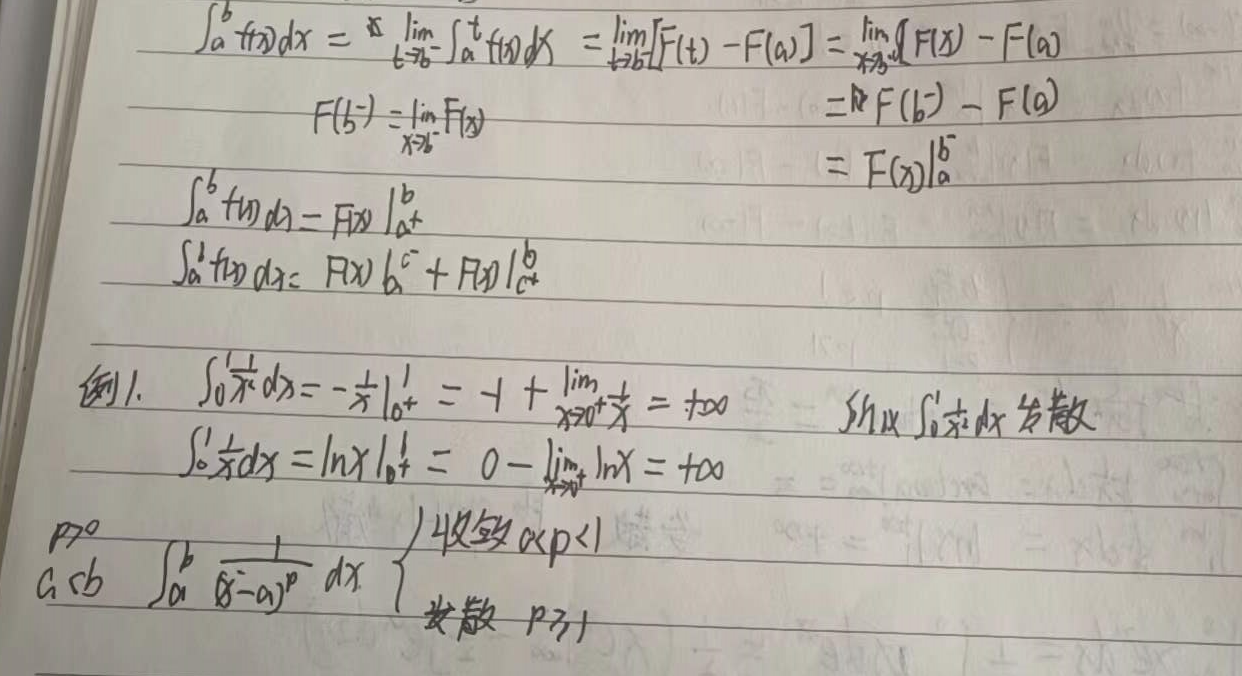 ∫_a^b f(x)dx = lim_{t→b⁻} ∫_a^t f(x)dx = lim_{t→b⁻}[F(t) - F(a)] = lim_{x→b⁻} F(x) - F(a)
F(b⁻) = lim_{x→b⁻} F(x) = F(b⁻) - F(a)
= F(x)|_a^{b⁻}
∫_a^b f(x)dx = F(x)|_{a⁺}^b
∫_a^b f(x)dx = F(x)|_a^{c⁻} + F(x)|_{c⁺}^b
例1. ∫_0^1 1/x² dx = -1/x|_{0⁺}^1 = -1 + lim_{x→0⁺} 1/x = +∞ 所以 ∫_0^1 1/x² dx 发散
∫_0^1 1/x dx = lnx|_{0⁺}^1 = 0 - lim_{x→0⁺} lnx = +∞
p>0 收敛 0<p<1
a<b ∫_a^b 1/(x-a)^p dx {
发散 p≥1